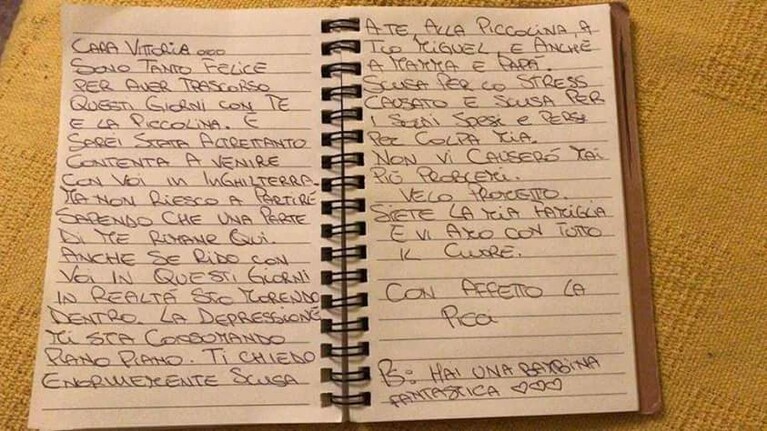 CARA VITTORIA ...
SONO TANTO FELICE
PER AVER TRASCORSO
QUESTI GIORNI CON TE
E LA PICCOLINA. E
SAREI STATA ALTRETTANTO
CONTENTA A VENIRE
CON VOI IN INGHILTERRA.
MA NON RIESCO A PARTIRE
SAPENDO CHE UNA PARTE
DI ME RIMANE QUI.
ANCHE SE RIDO CON
VOI IN QUESTI GIORNI
IN REALTÀ STO MORENDO
DENTRO. LA DEPRESSIONE
MI STA CONSUMANDO
PIANO PIANO. TI CHIEDO
ENORMEMENTE SCUSA
A TE, ALLA PICCOLINA, A
TUO MIGUEL, E ANCHE
A MAMMA E PAPÀ.
SCUSA PER LO STRESS
CAUSATO E SCUSA PER
I SOLDI SPESI E PERSI
PER COLPA MIA.
NON VI CAUSERÓ MAI
PIÙ PROBLEMI.
VELO PROMETTO.
SIETE LA MIA FAMIGLIA
E VI AMO CON TUTTO
IL CUORE.
CON AFFETTO LA
PICCI
PS: HAI UNA BAMBINA
FANTASTICA ♡♡♡